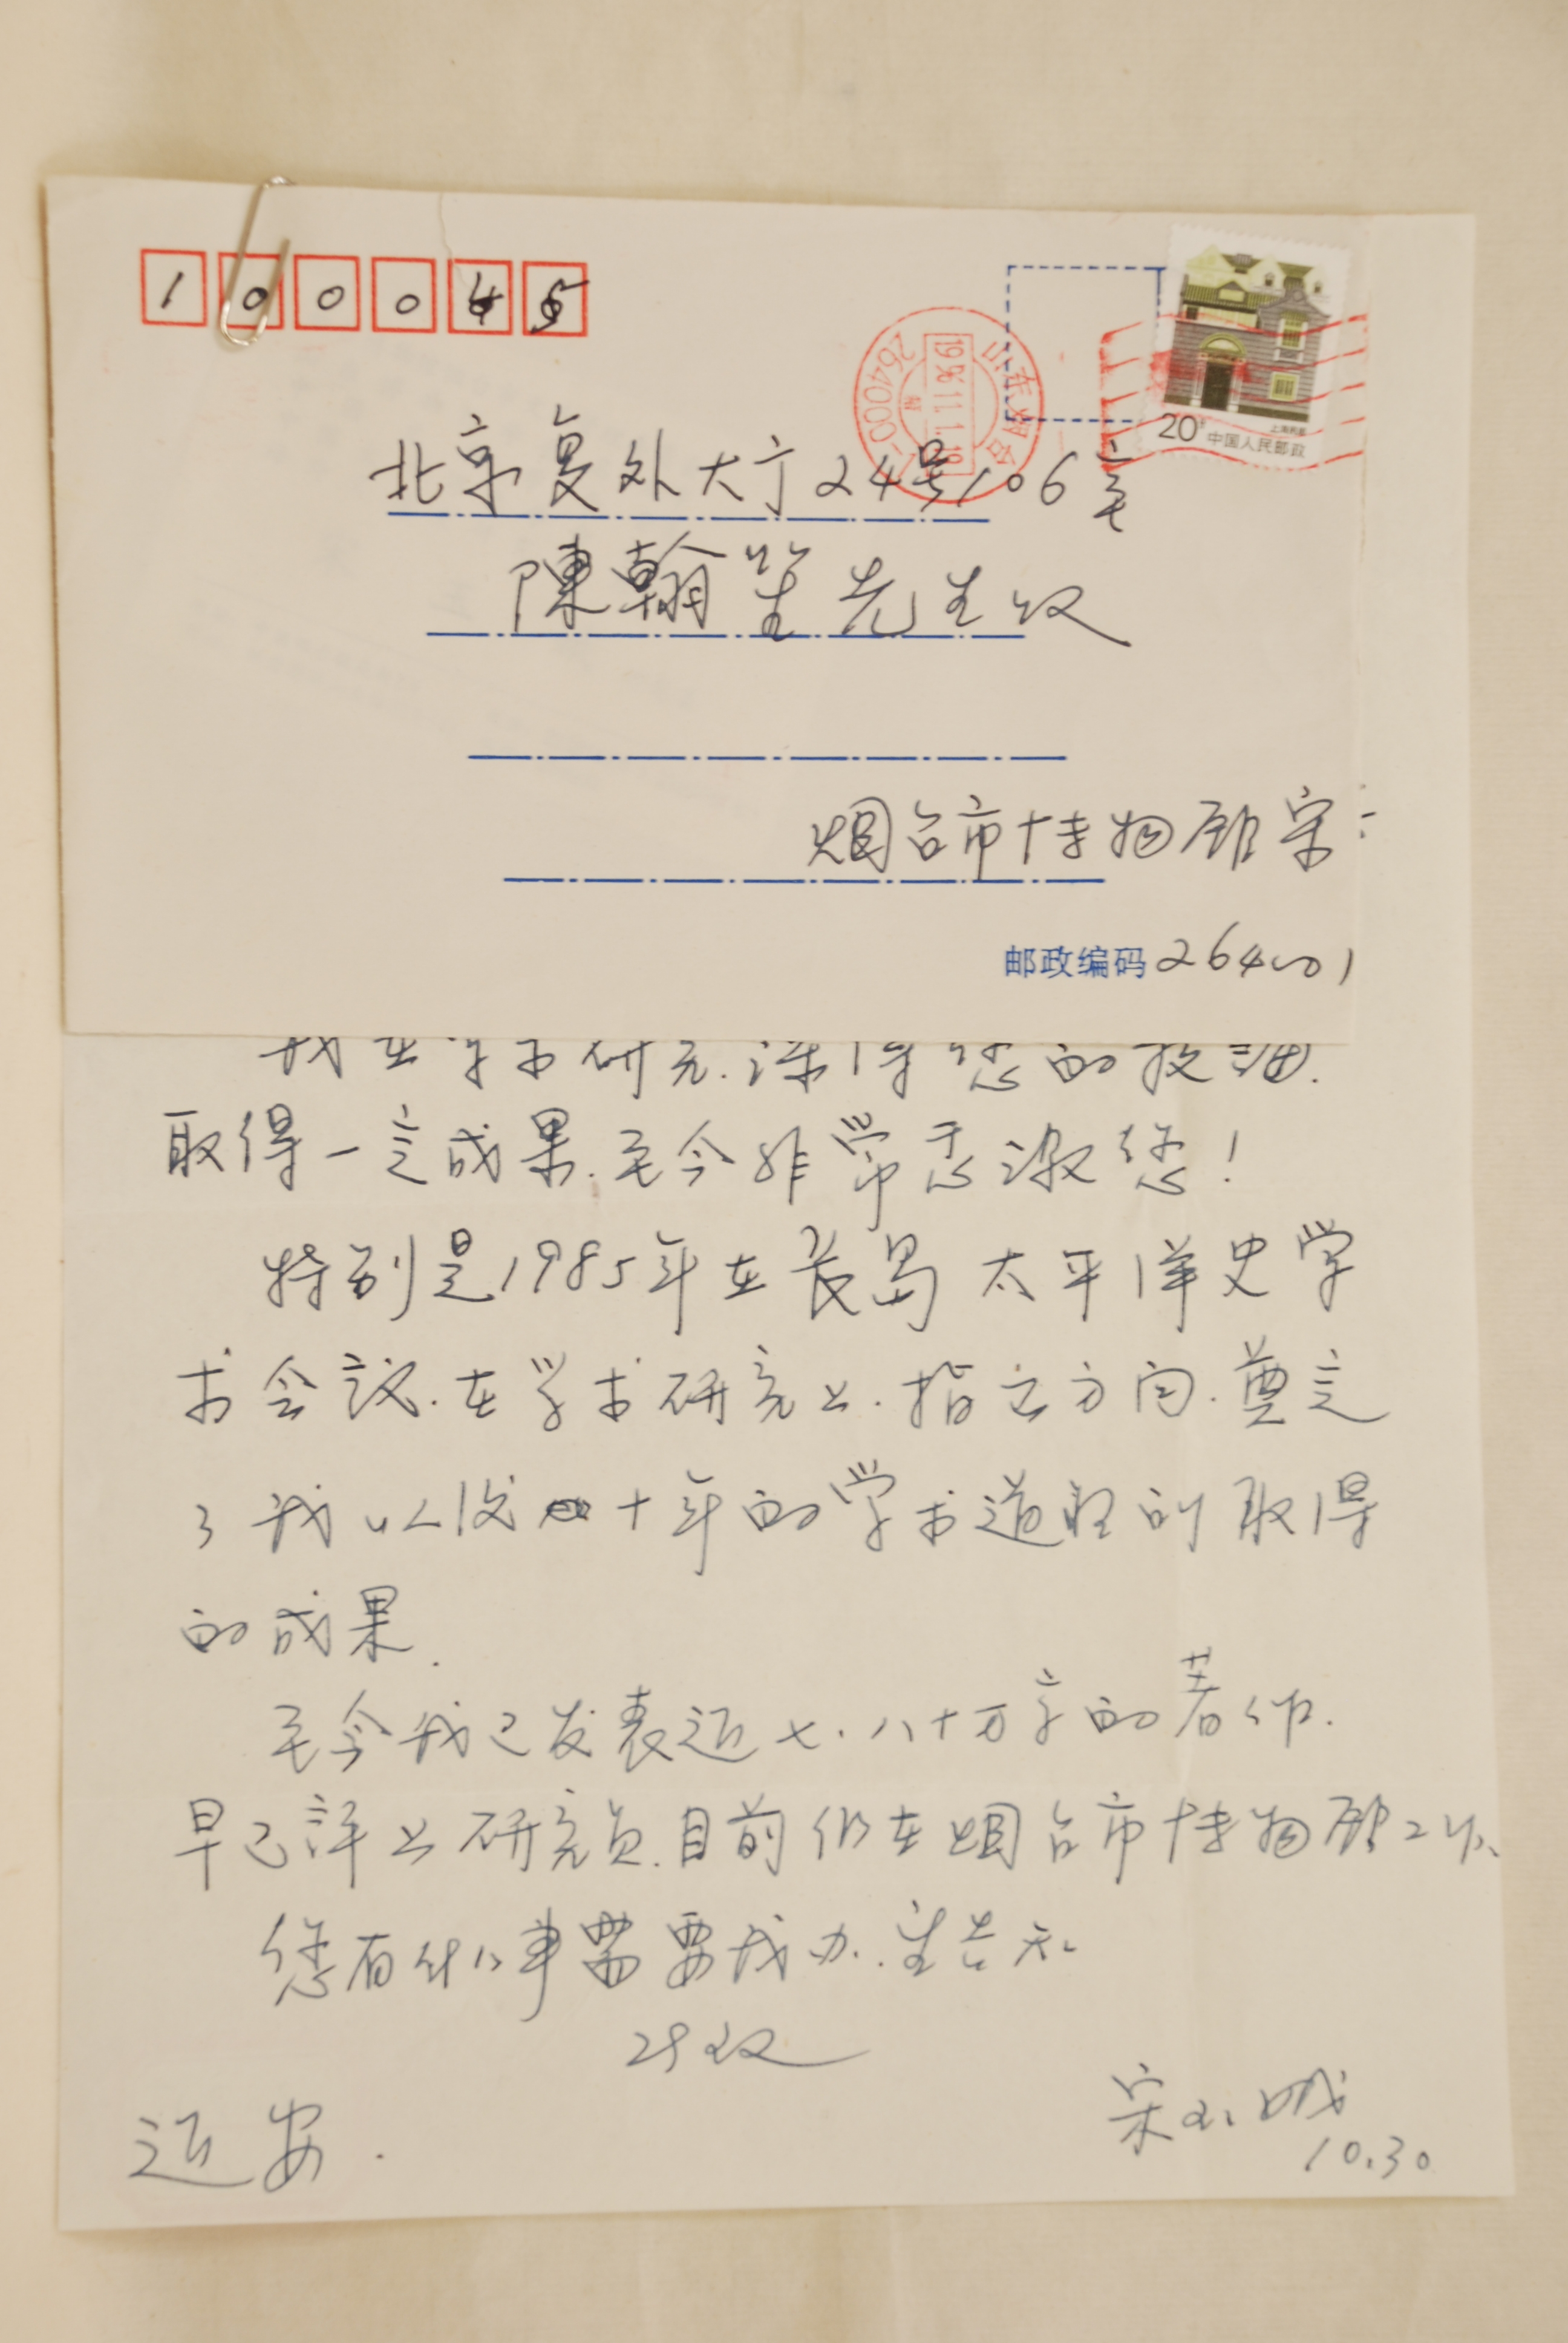 100045
20分
上海民居
中国人民邮政
山东烟台
1996.11.1.19
264000
北京复外大厅24号106室
陳翰笙先生收
烟台市博物馆宋
邮政编码264001
我在学术研究.深得您的教诲.
取得一定成果.至今非常感激您!
特别是1985年在长岛太平洋史学
术会议.在学术研究上.指立方向.奠定
了我以后十年的学术道路的取得
的成果.
至今我已发表近七.八十万字的著作.
早已評上研究员.目前仍在烟台市博物馆工作.
您有什么事需要我办.望告知
此致
近安.
宋玉娥
10.30